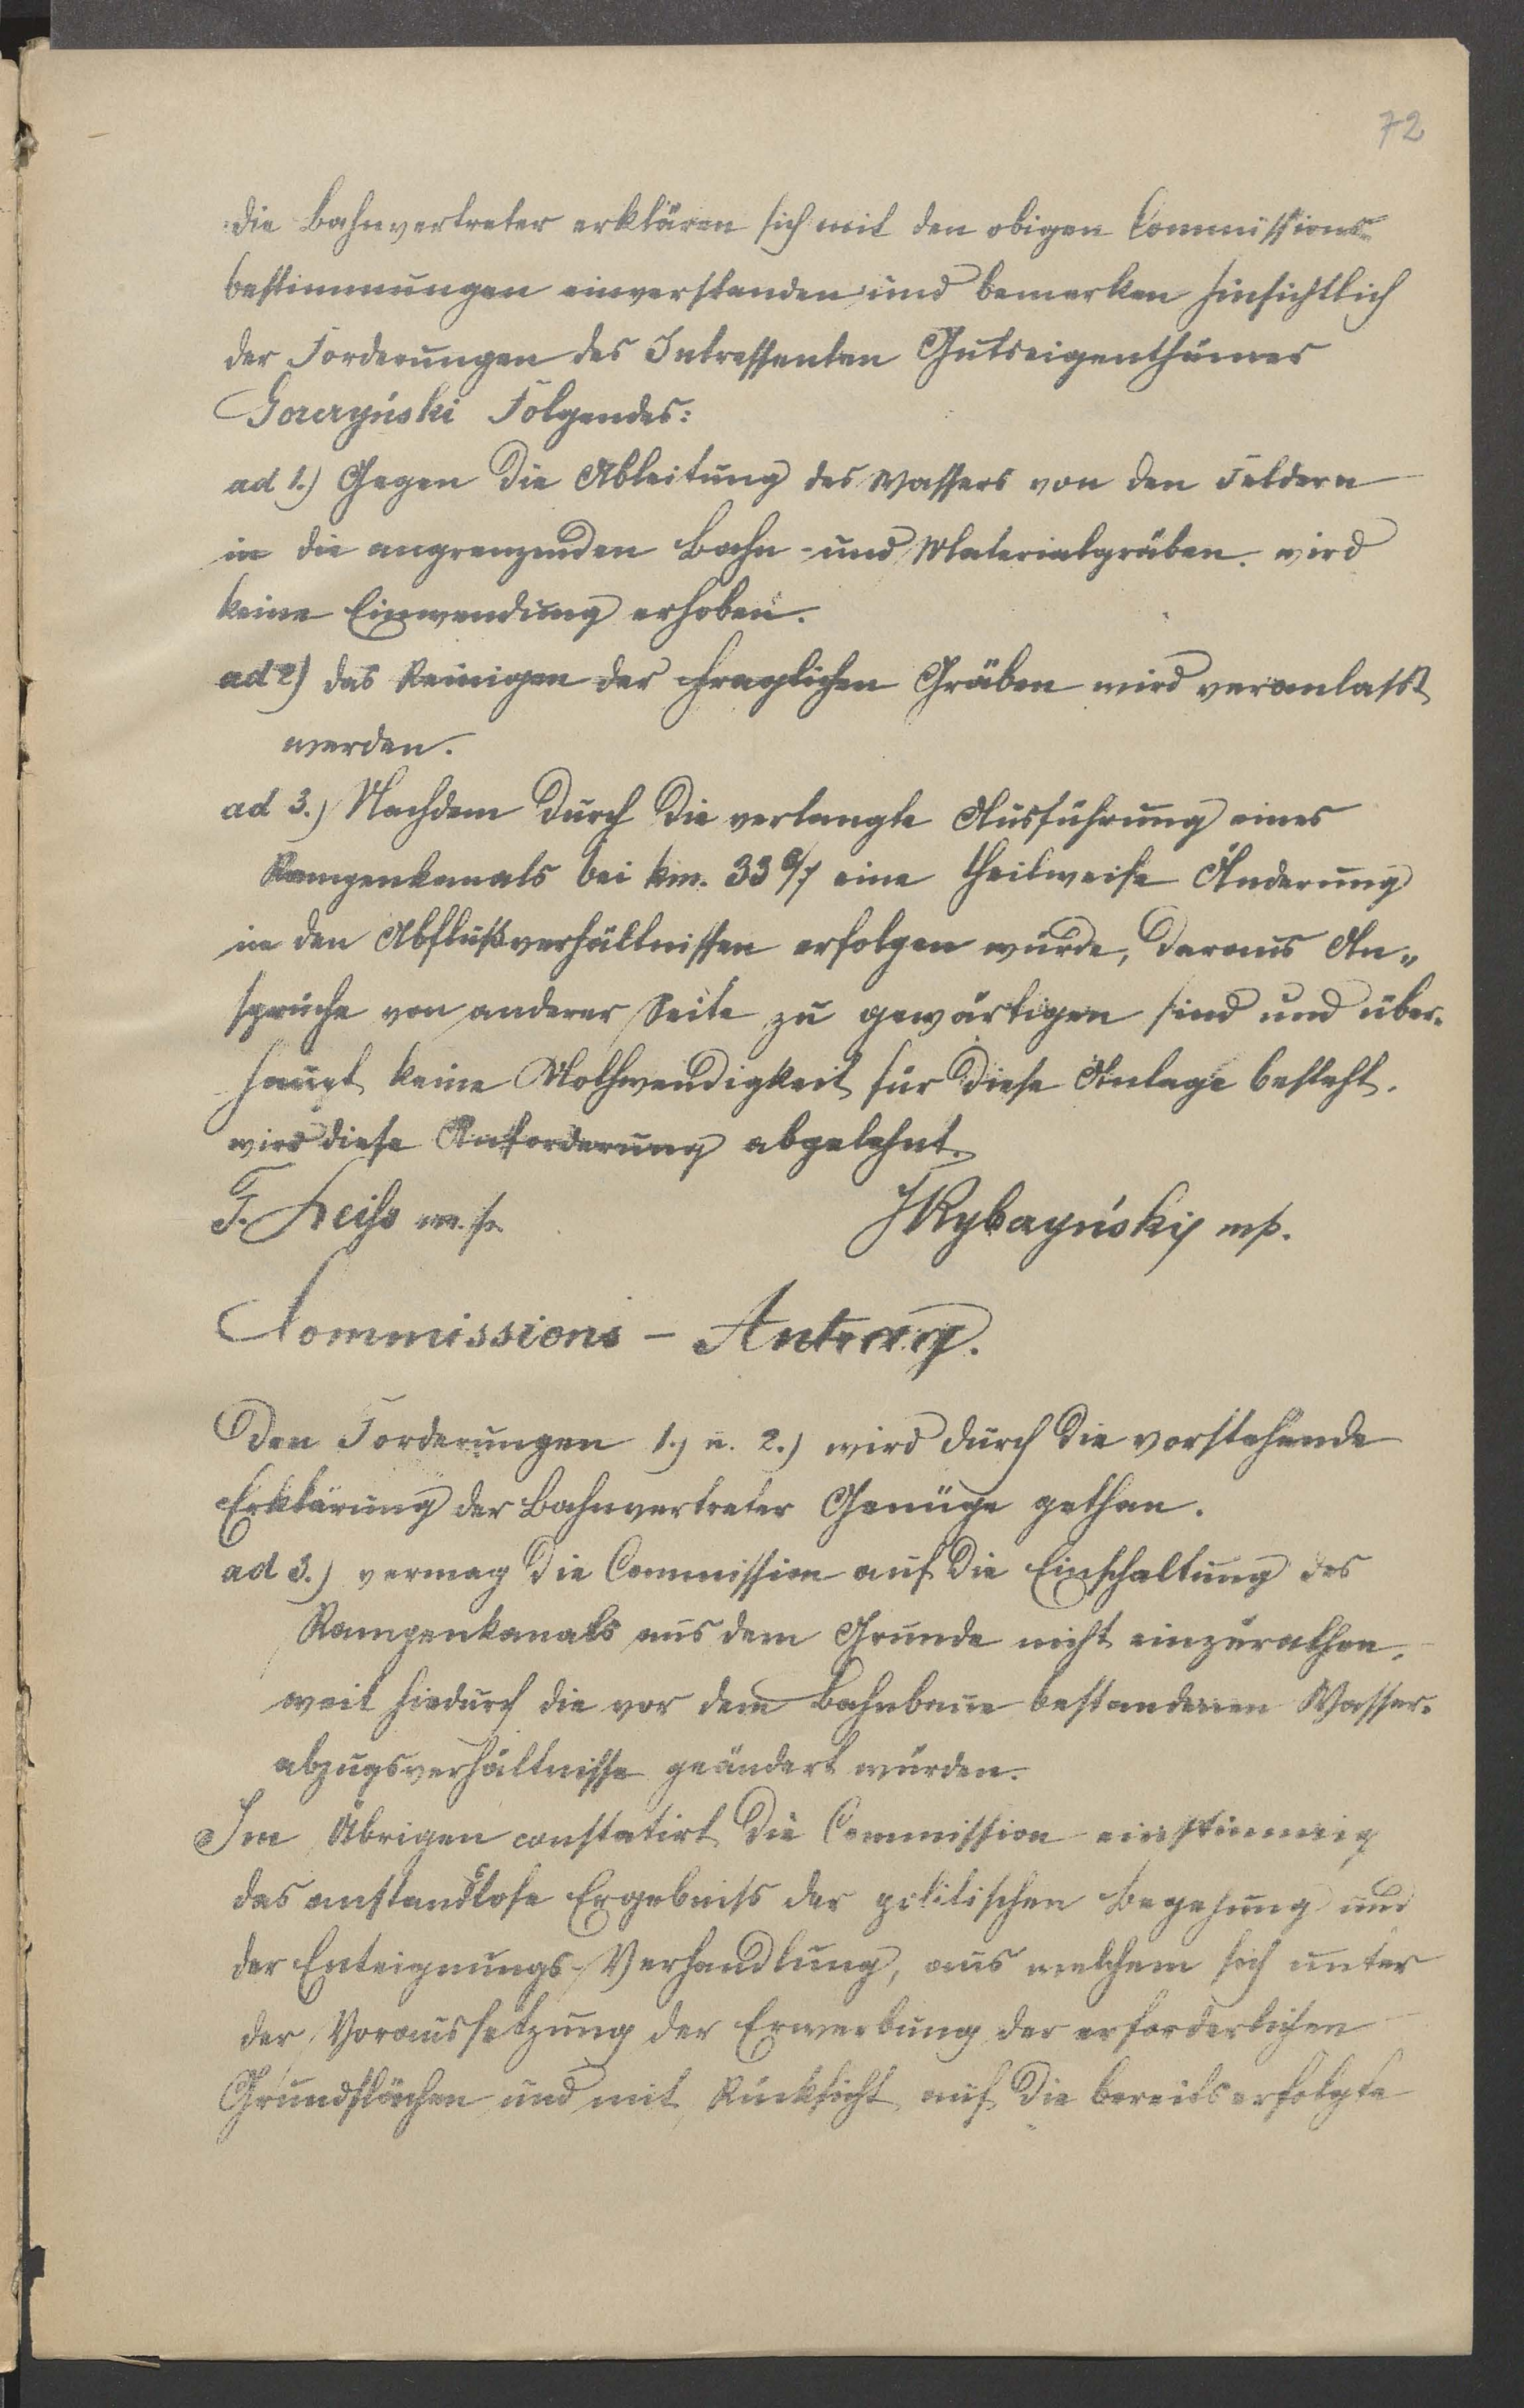 72
die Bahnvertreter erklären sich mit den obigen Commissions-
bestimmungen einverstanden und bemerken hinsichtlich
der Forderungen des Intressenten Gutseigenthümer
Gorczyński Folgendes:
ad 1.) Gegen die Ableitung des Wassers von den Feldern
in die angrenzenden Bahn- und Materialgräben wird
keine Einwendung erhoben.
ad 2) das Reinigen der fraglichen Gräben wird veranlasst
werden.
ad 3.) Nachdem durch die verlangte Ausführung eines
Rampenkanals bei km. 33 6/7 eine theilweise Änderung
in den Abflußverhältnissen erfolgen würde, daraus An„
sprüche von anderer Seite zu gewärtigen sind und über-
haupt keine Nothwendigkeit für diese Anlage besteht,
wird diese Anforderung abgelehnt.
F. Leiss m.p. JRybczyński mp.
Commissions - Antrag.
Den Forderungen 1.) u. 2.) wird durch die vorstehende
Erklärung der Bahnvertreter Genüge gethan.
ad 3.) vermag die Commission auf die Einschaltung des
Rampenkanals aus dem Grunde nicht einzurathen,
weil hiedurch die vor dem Bahnbaue bestandenen Wasser-
abzugsverhältnisse geändert würden.
Im Übrigen constatirt die Commission einstimmig
das anstandslose Ergebniss der politischen Begehung und
der Enteignungs-Verhandlung, aus welchem sich unter
der Voraussetzung der Erwerbung der erforderlichen
Grundflächen und mit Rücksicht auf die bereits erfolgte